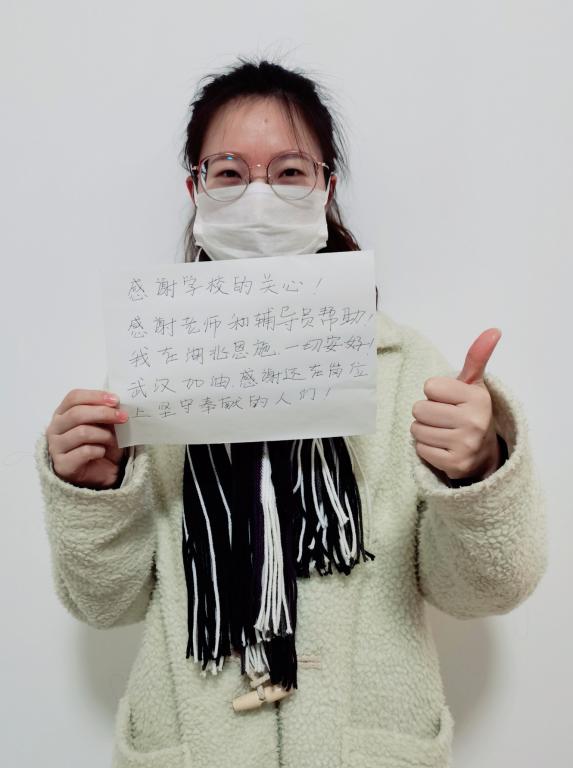 感谢学校的关心！
感谢老师和辅导员帮助！
我在湖北恩施.一切安好！
武汉加油.感谢还在岗位
上坚守奉献的人们！